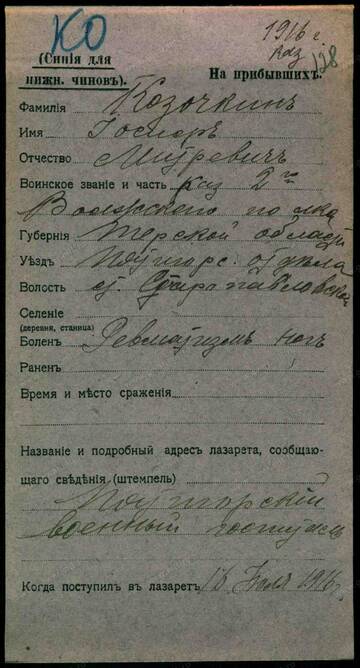 КО
1916 г.
каз
128
(Синія для
нижн. чиновъ).
На прибывшихъ.
Фамилія Козочкинъ
Имя
Отчество
Воинское званіе и часть каз 2го
Волжского полка
Губернія Терской области
Уѣздъ Пятигорс. отдѣла
Волость ст. Старопавловской
Селеніе
(деревня, станица)
Боленъ Ревматизмъ ногъ
Раненъ
Время и мѣсто сраженія
Названіе и подробный адресъ лазарета, сообщаю-
щаго свѣдѣнія (штемпель)
Пятигорскій
военный госпиталь
Когда поступилъ въ лазаретъ 1916 г.